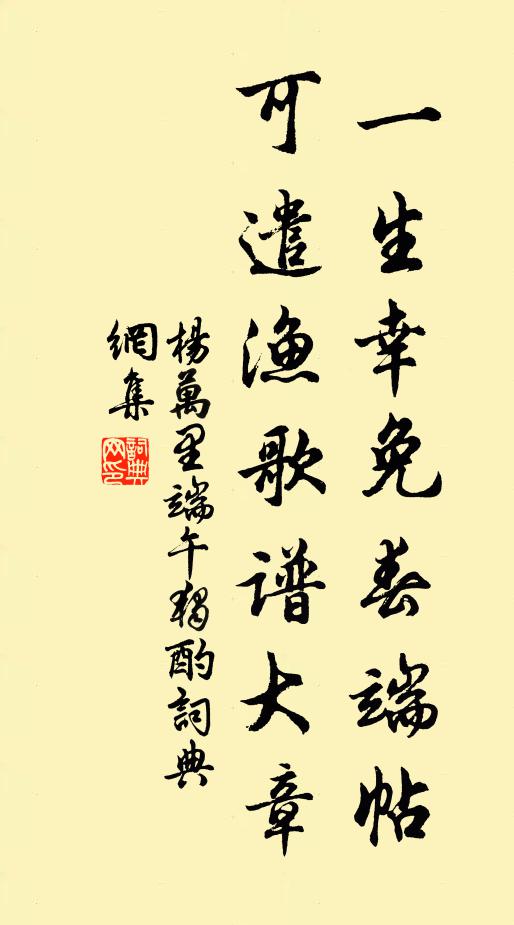 一生幸免春端帖
可遣渔歌谱大章
楊萬里端午獨酌詞典
網集
詞典
网印